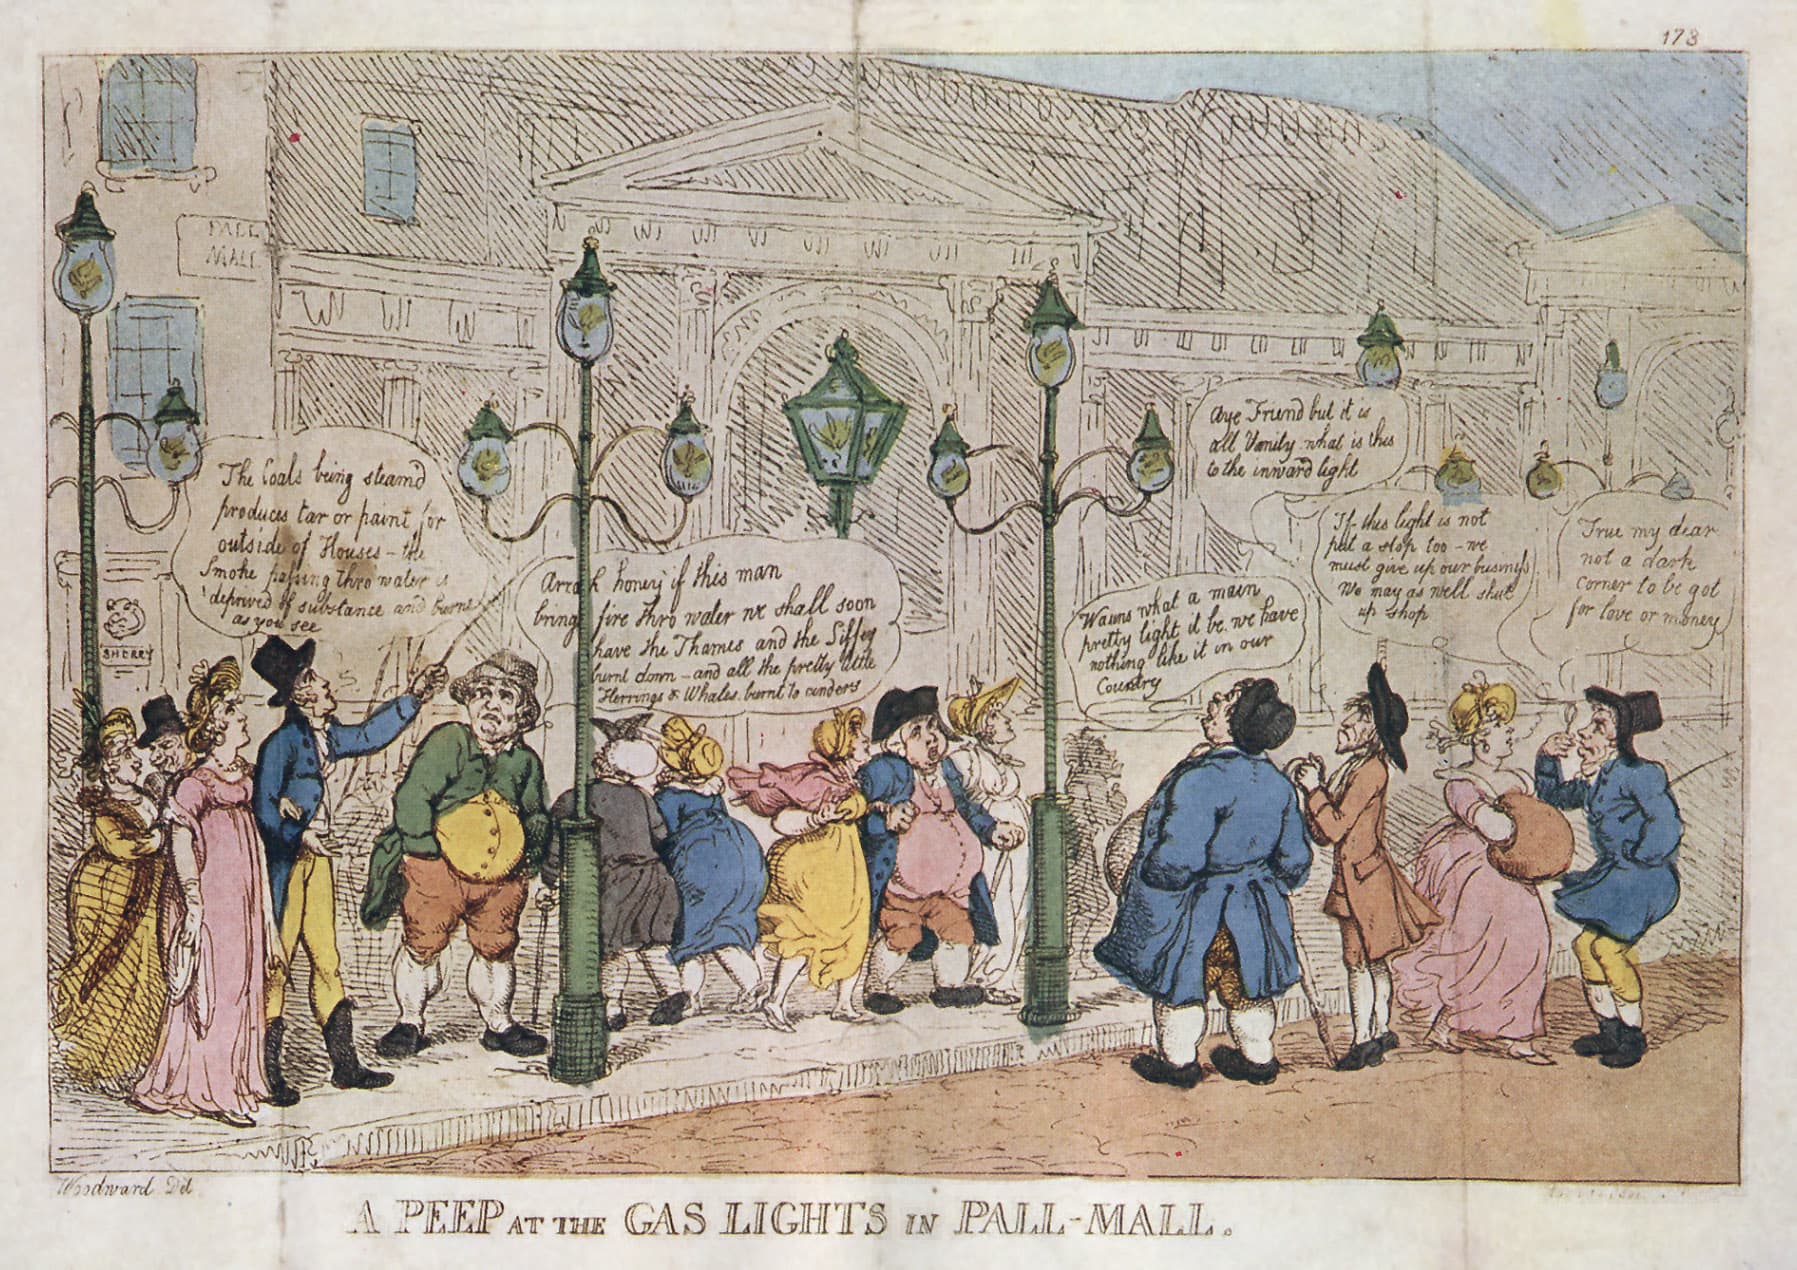 173
PALL
MALL
The Coals being steam'd
produces tar or paint for
outside of Houses - the
Smoke passing thro water is
deprived of substance and burns
as you see
Arrah honey if this man
brings fire thro water we shall soon
have the Thames and the Liffey
burnt down - and all the pretty little
Herrings & Whales burnt to cinders
Wauns what a main
pretty light it be we have
nothing like it in our
Country
Aye Friend but it is
all Vanity what is this
to the inward light
If this light is not
put a stop too - we
must give up our business
We may as well shut
up shop
True my dear
not a dark
corner to be got
for love or money
SHERRY
Woodward Del
A PEEP AT THE GAS LIGHTS IN PALL-MALL.